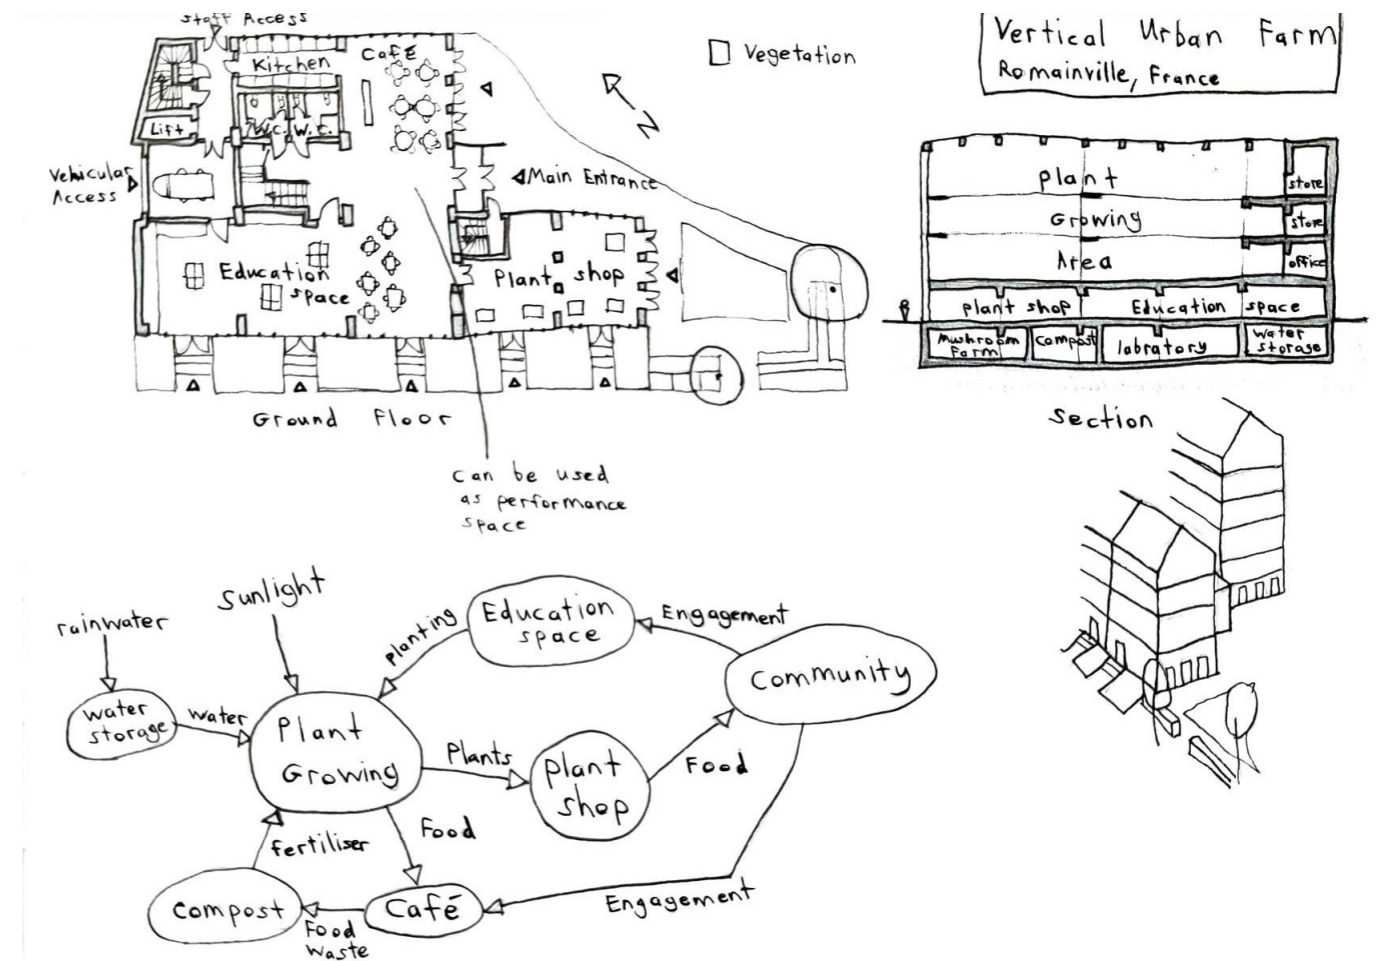 Staff Access
Café
Kitchen
Lift
W.C. W.C.
Vehicular
Access
Main Entrance
N
Education
space
Plant shop
Ground Floor
can be used
as performance
space
Vegetation
Vertical Urban Farm
Romainville, France
Plant
Growing
Area
store
store
office
plant shop
Education space
Mushroom
Farm
compost
labratory
water
storage
Section
rainwater
sunlight
water
storage
water
Plant
Growing
planting
Education
space
Engagement
Community
Plants
Plant
shop
Food
Food
fertiliser
compost
Food
waste
Café
Engagement